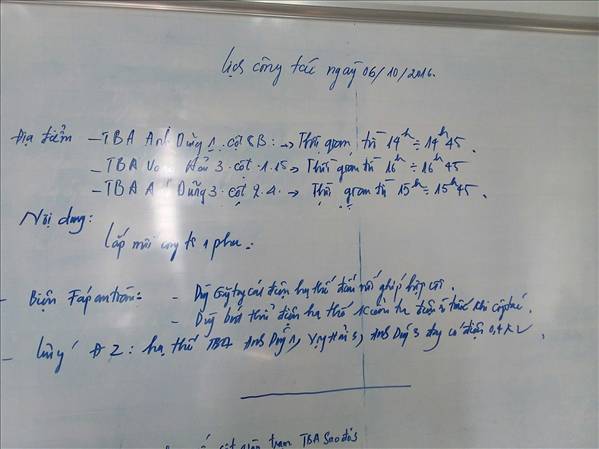 Lịch công tác ngày 06/10/2016.
Địa điểm - TBA Anh Dũng 1 cột 8B: -> Thời gian từ 14h ÷ 14h45.
- TBA Hải 3 cột 1.15 -> Thời gian từ 16h ÷ 16h45
- TBA Anh Dũng 3 cột 2.4. -> Thời gian từ 15h ÷ 15h45.
Nội dung:
Lắp mới công tơ 1 pha.
- Biện pháp an toàn: - Dùng Găng tay cách điện hạ thế đấu nối ghíp bọc
- Dùng bút thử điện hạ thế kiểm tra điện trước khi
- Lưu ý ĐZ: hạ thế TBA Anh Dũng 1, 3, Anh Dũng 3 đang có điện 0,4kV.
cột trạm TBA Sao đỏ